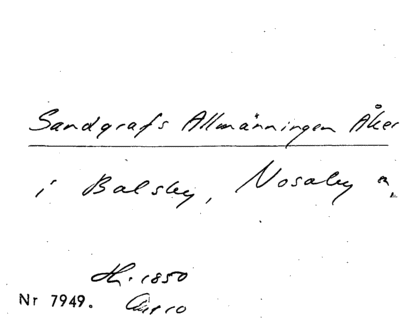 Sandgrafs Allmänningen Åker
i Balsby, Nosaby
1850
Nr 7949.